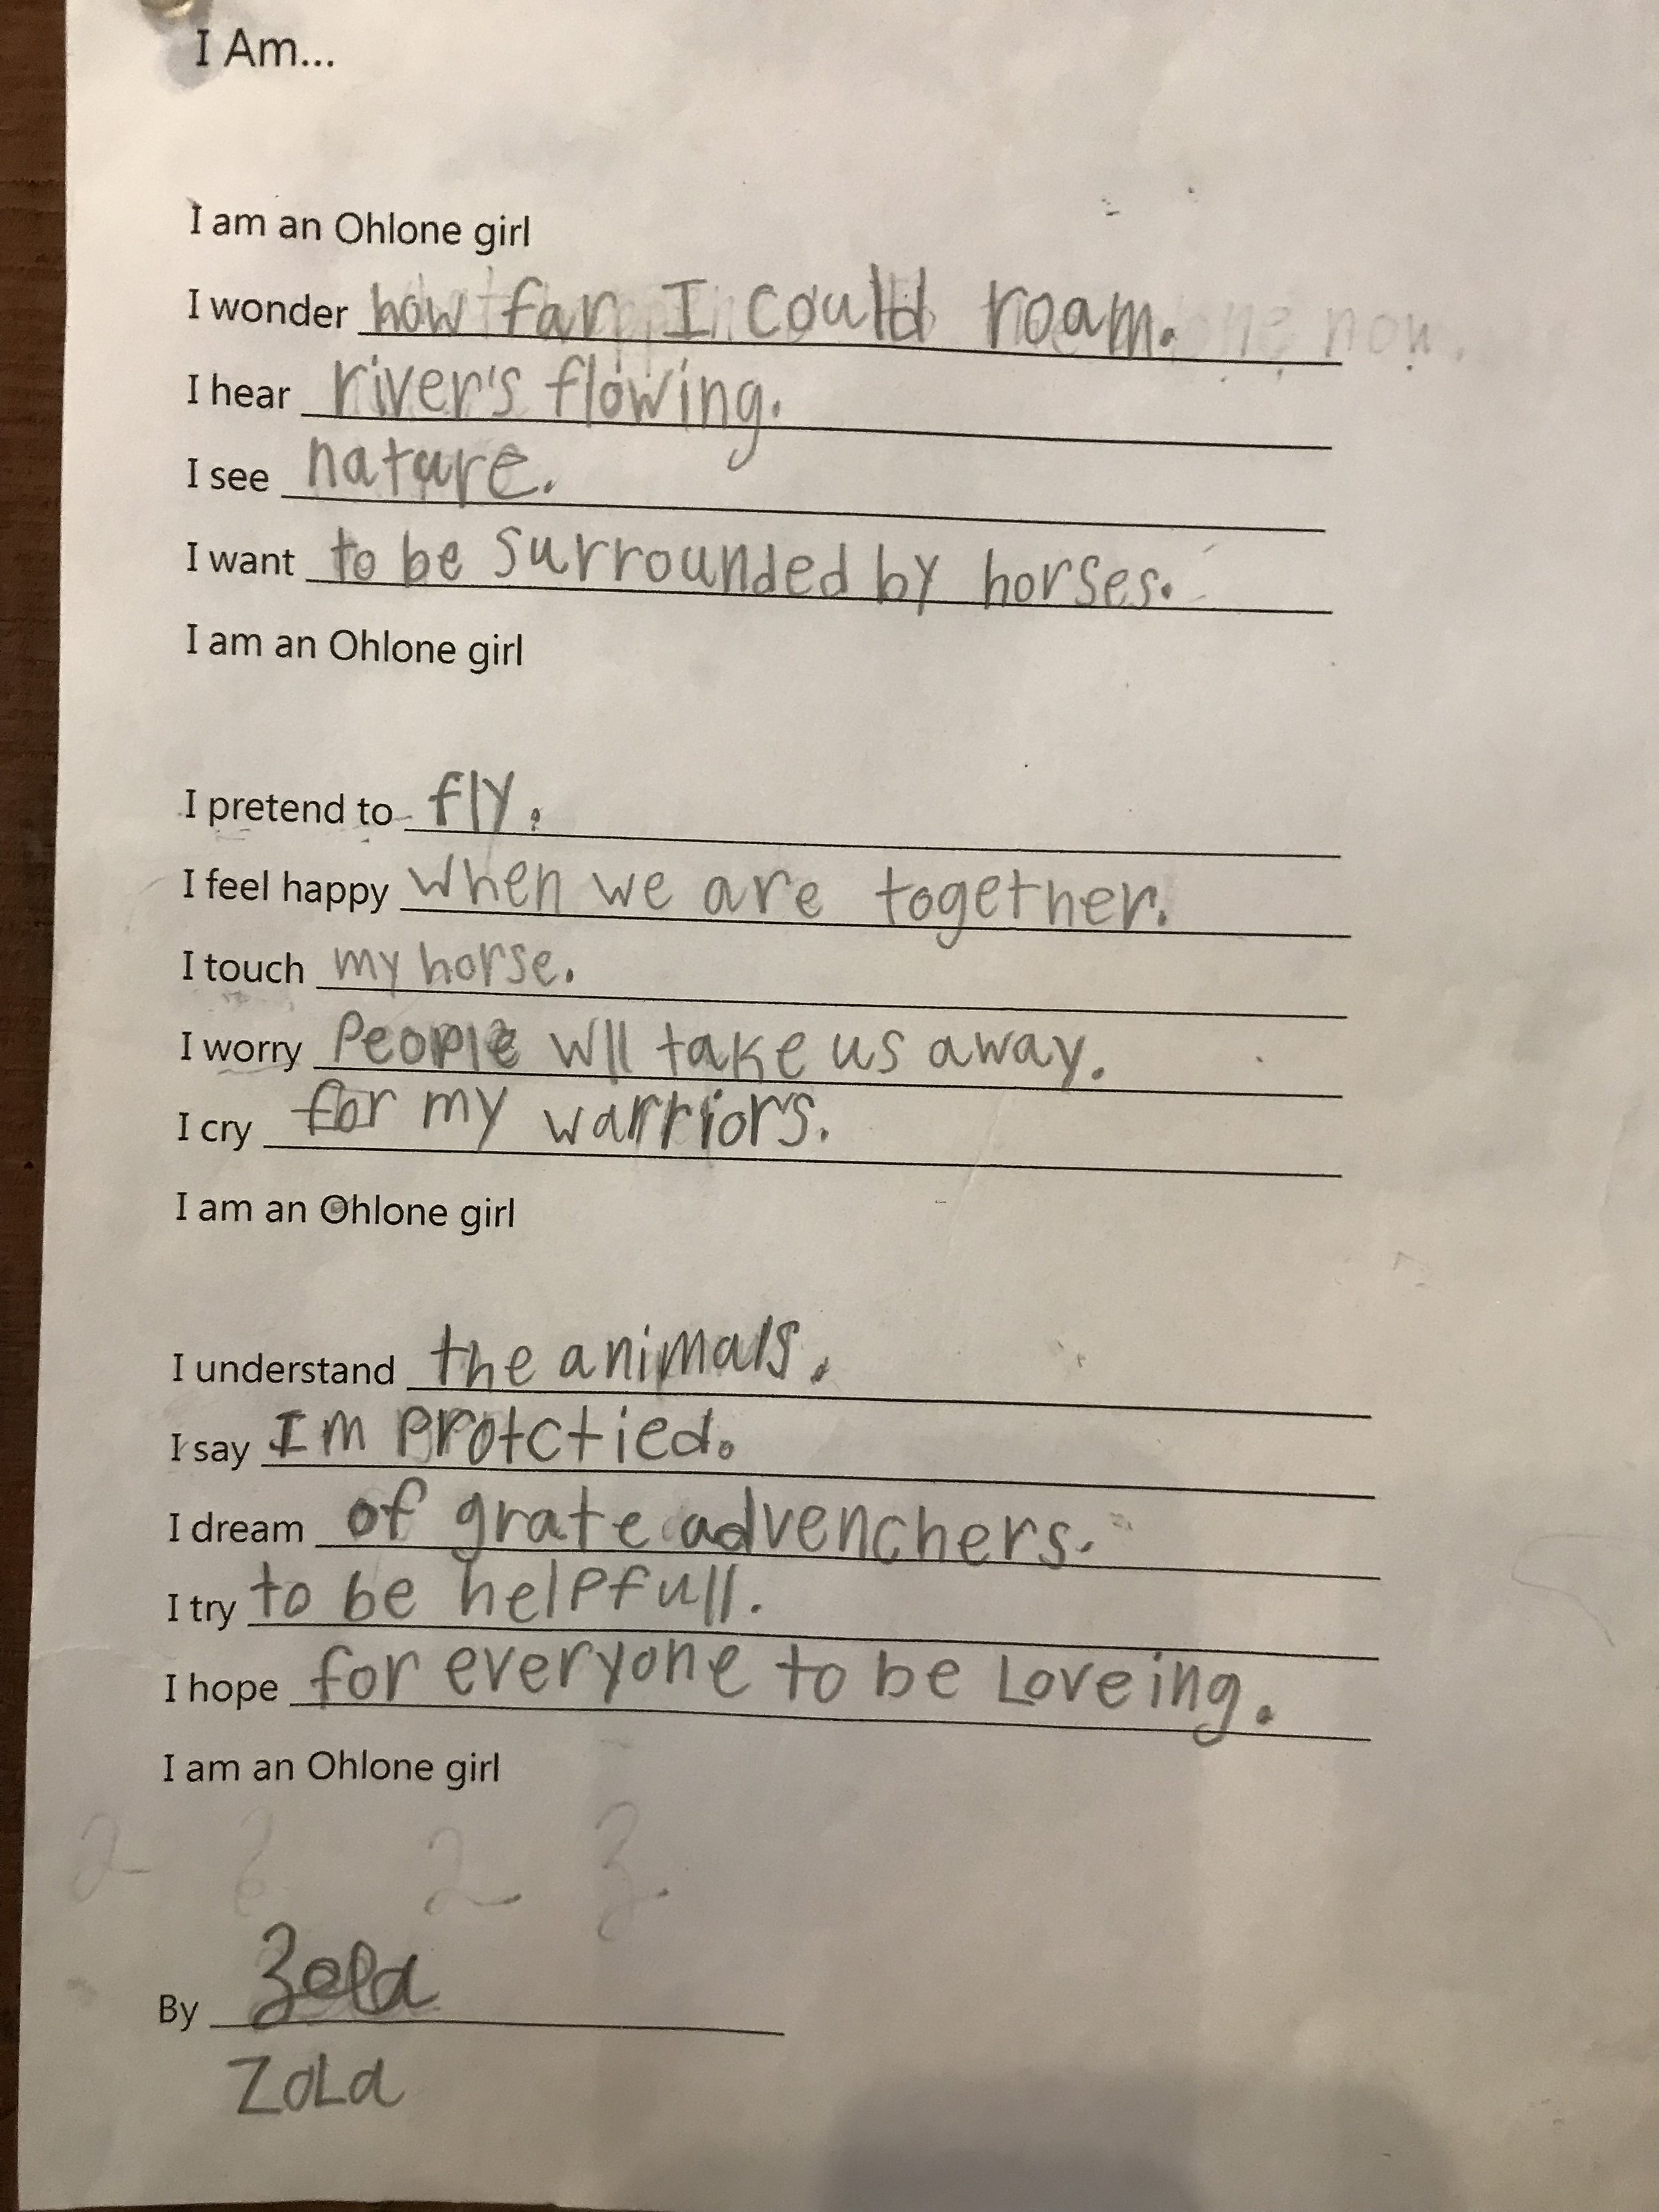 I Am...
I am an Ohlone girl
I wonder how far I could roam.
I hear river's flowing.
I see nature.
I want to be surrounded by horses.
I am an Ohlone girl
I pretend to fly.
I feel happy when we are together.
I touch my horse.
I worry People wll take us away.
I cry for my warriors.
I am an Ohlone girl
I understand the animals.
I say Im Protctied.
I dream of grate advenchers.
I try to be helpfull.
I hope for everyone to be Loveing.
I am an Ohlone girl
By Zola
ZoLa